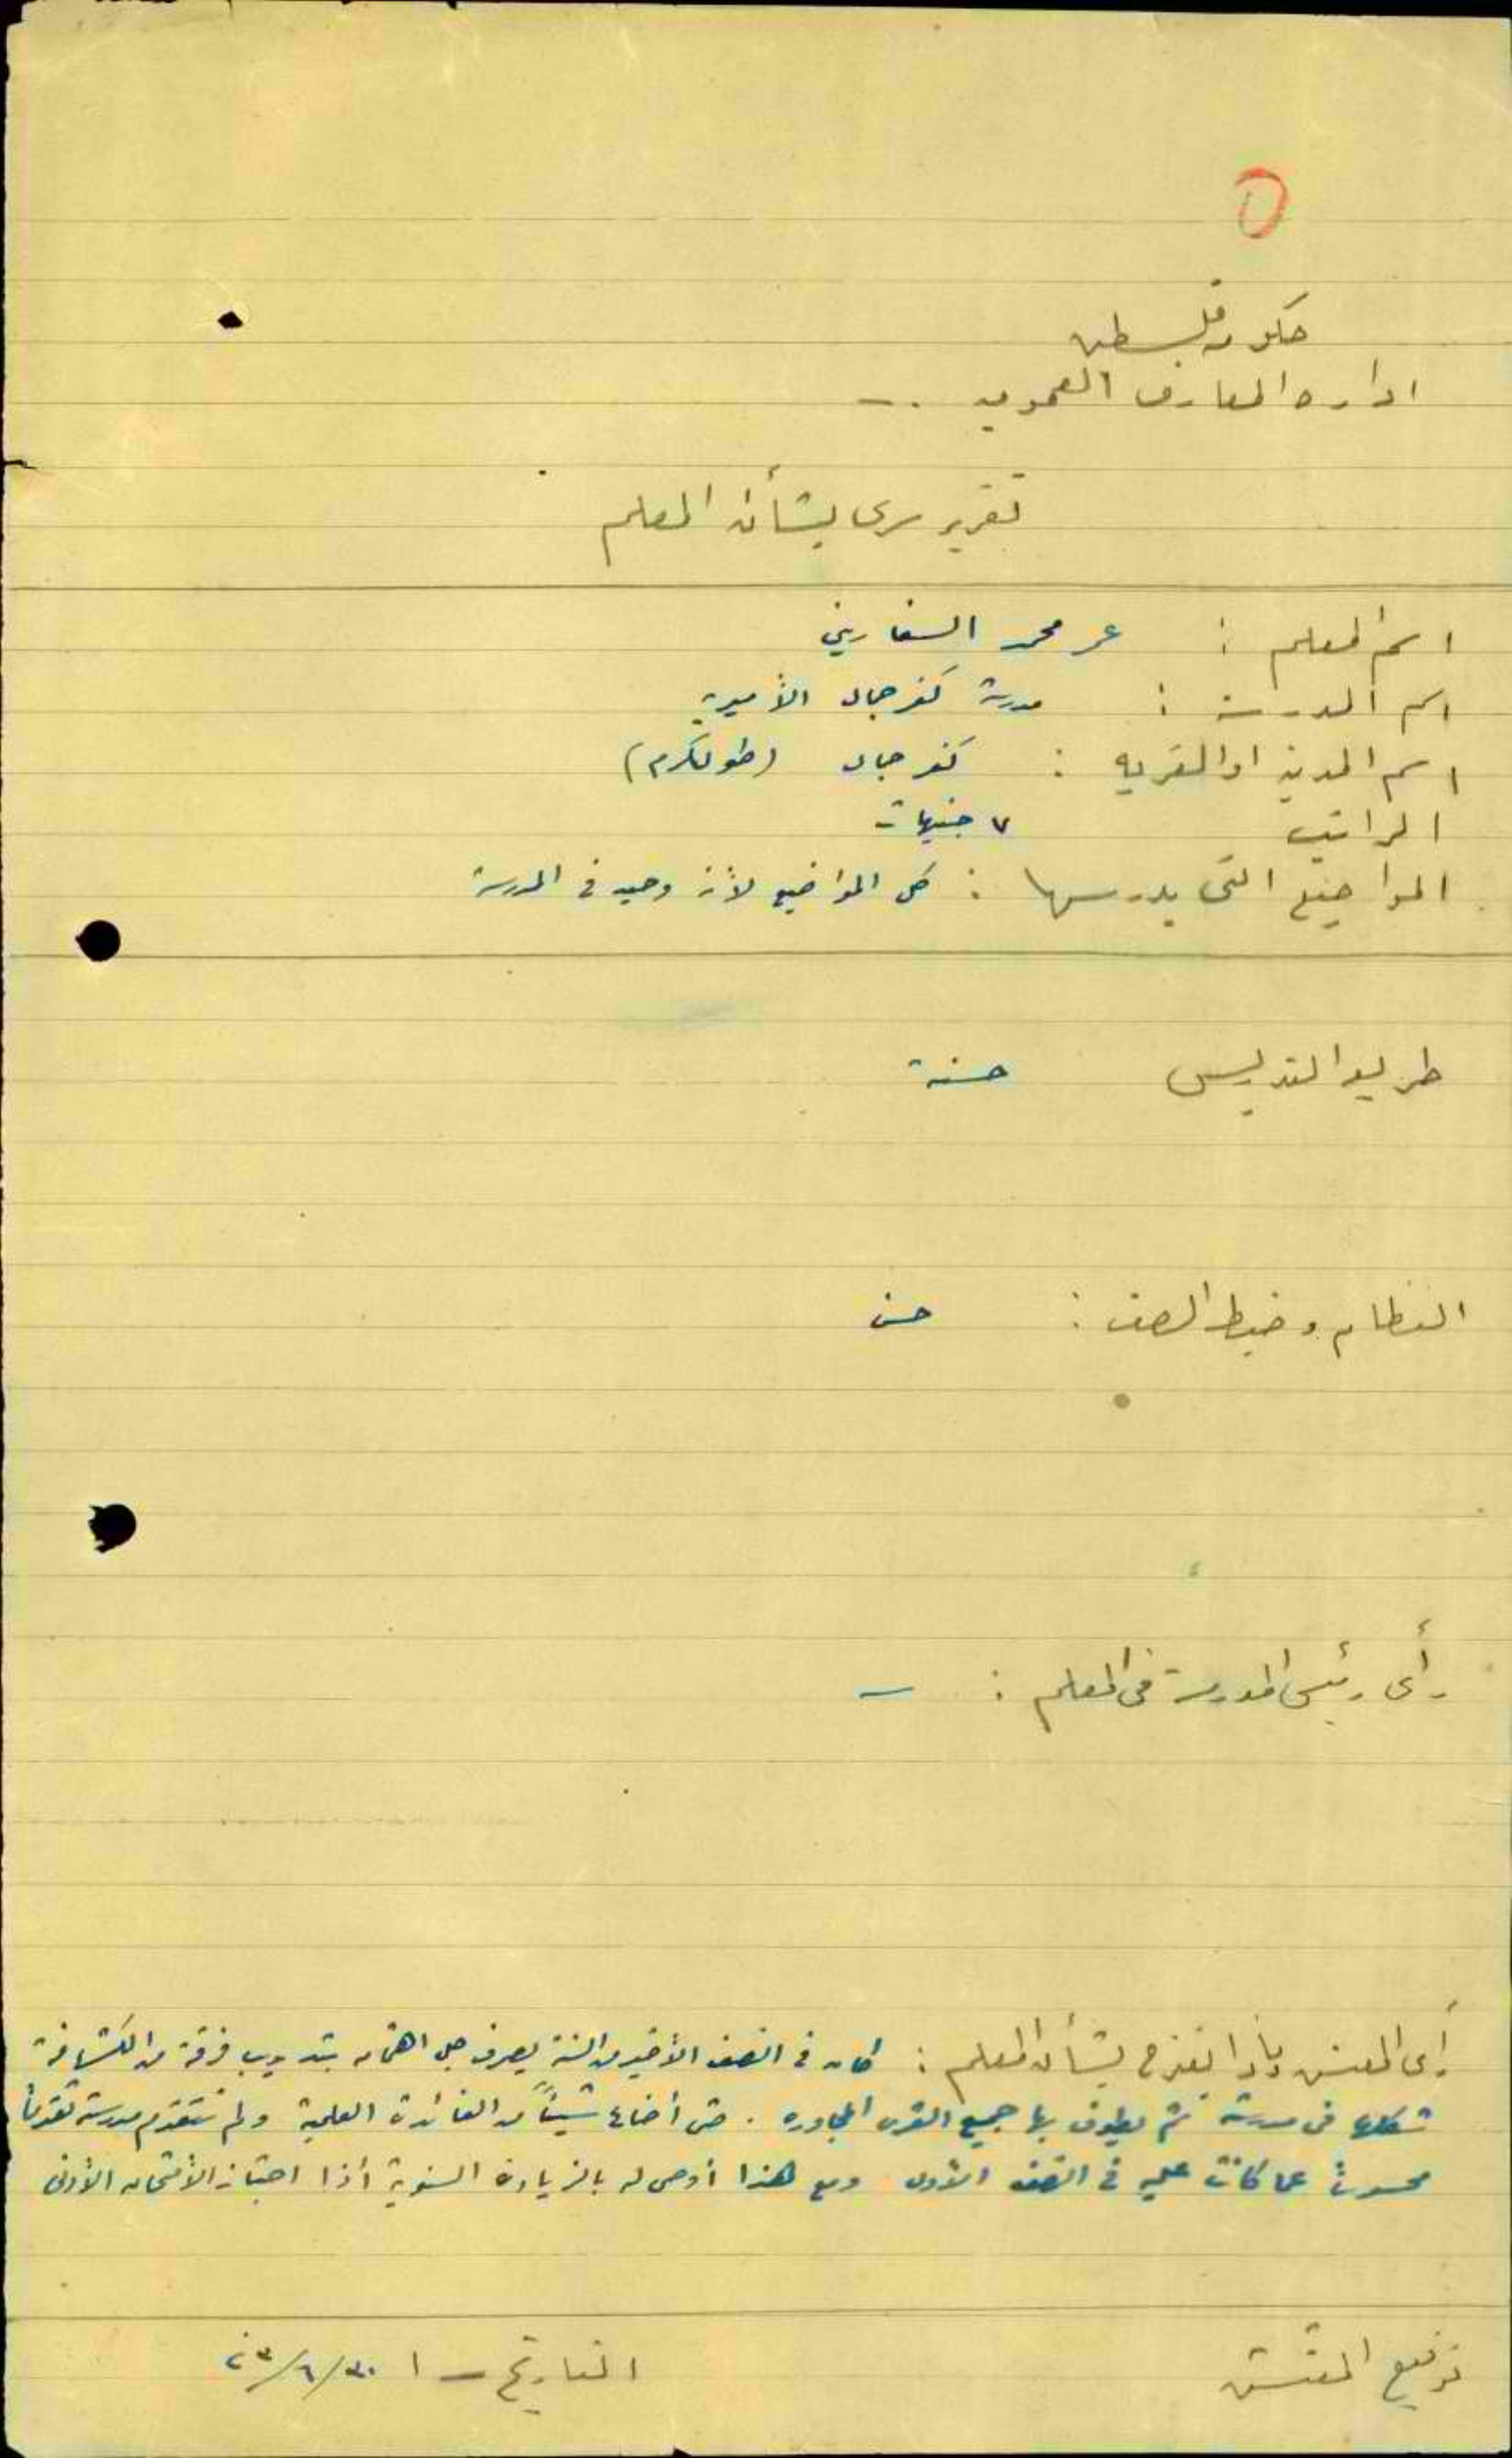 ٥
حكومة فلسطين
ادارة المعارف العمومية .-
تقرير سري بشأن المعلم
اسم المعلم : عمر محمد السفاريني
اسم المدرسة : مدرسة كفر جمال الأميرية
اسم المدينة او القرية : كفر جمال (طولكرم)
الراتب ٧ جنيهات
المواضيع التي يدرسها : كل المواضيع لأنه وحيد في المدرسة
طريقة التدريس حسنة
النظام وضبط الصف : حسن
رأي رئيس المدرسة في المعلم : —
رأي المفتش وماذا يقترح بشأن المعلم : كان في النصف الأخير من السنة يصرف جل اهتمامه بتدريب فرقة من الكشافة
شكلها في مدرسته ثم يطوف بها جميع القرى المجاورة . حتى أضاع شيئاً من الفائدة العلمية ولم تتقدم مدرسته تقدماً
محسوساً عما كانت عليه في النصف الأول ومع هذا أوصي له بالزيادة السنوية أذا اجتاز الأمتحان الأدنى
توقيع المفتش التاريخ — ٣٠/٦/٢٣